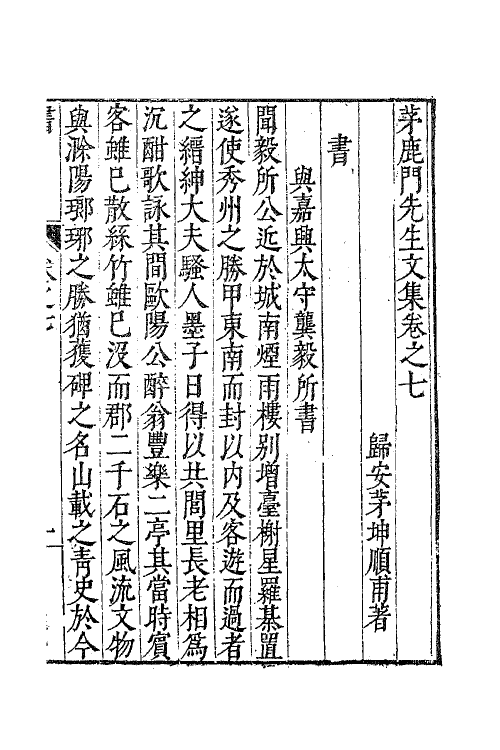 茅鹿門先生文集卷之七
歸安茅坤順甫著
書
與嘉興太守龔毅所書
聞毅所公近於城南煙雨樓别增臺榭星羅碁置
遂使秀州之勝甲東南而封以内及客遊而過者
之縉紳大夫騷人墨子日得以共閭里長老相為
沉酣歌詠其間歐陽公醉翁豐樂二亭其當時賓
客雖已散絲竹雖已没而郡二千石之風流文物
與滁陽瑯琊之勝猶獲碑之名山載之青史於今